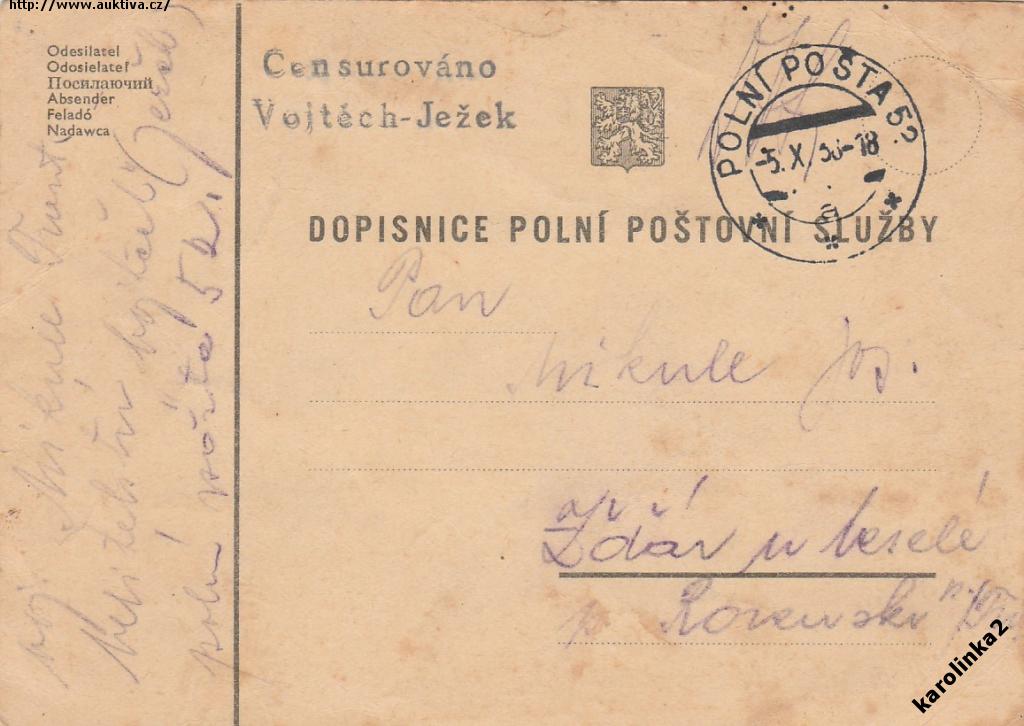 http://www.auktiva.cz/
Odesílatel
Odosielateľ
Посилаючий
Absender
Feladó
Nadawca
Censurováno
Vojtěch-Ježek
POLNÍ POŠTA 52
-5.X.38-18
DOPISNICE POLNÍ POŠTOVNÍ SLUŽBY
Pan
Mikule
Ždár u Veselé
p.
voj. Mikule
Velitelství
polní pošta 52
karolinka2